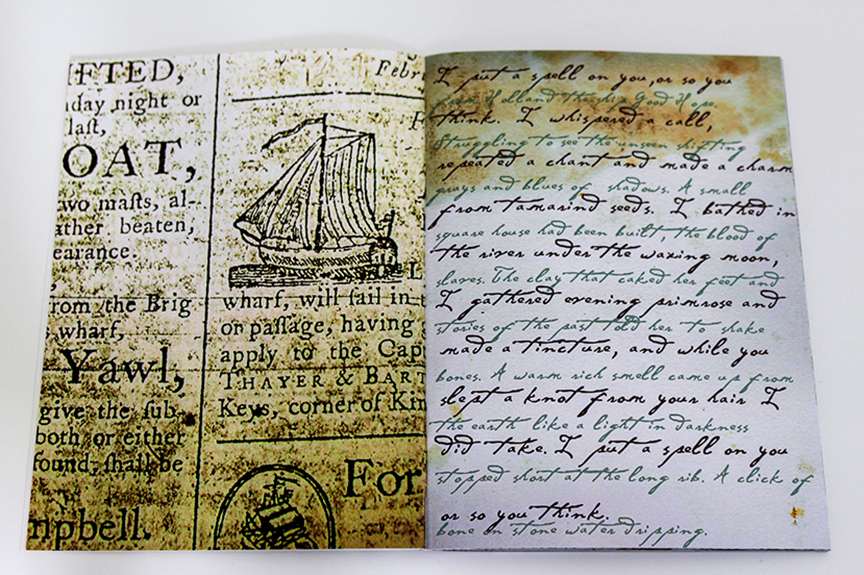 IFTED,
day night or
last,
OAT,
two masts, al-
ather beaten,
earance.
rom the Brig
wharf,
Yawl,
give the sub-
both or either
found, shall be
mpbell.
Febru
F
L
wharf, will sail in
or passage, having
apply to the Capt
THAYER & BART
Keys, corner of Kin
For
I put a spell on you, or so you
from Holland the ship Good Hope.
think. I whispered a call,
Struggling to see the unseen shifting
repeated a chant and made a charm
grays and blues of shadows. A small
from tamarind seeds. I bathed in
square house had been built, the blood of
the river under the waxing moon,
slaves. The clay that caked her feet and
I gathered evening primrose and
stories of the past told her to shake
made a tincture, and while you
bones. A warm rich smell came up from
slept a knot from your hair I
the earth like a light in darkness
did take. I put a spell on you
stopped short at the long rib. A click of
or so you think.
bone on stone water dripping.